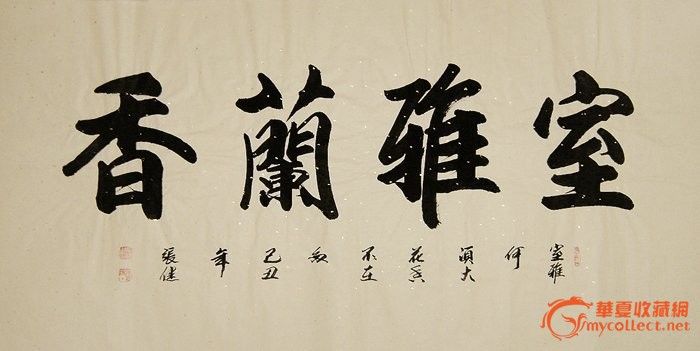 室雅蘭香
室雅何須大花香不在多己丑年張健
華夏收藏網
mycollect.net